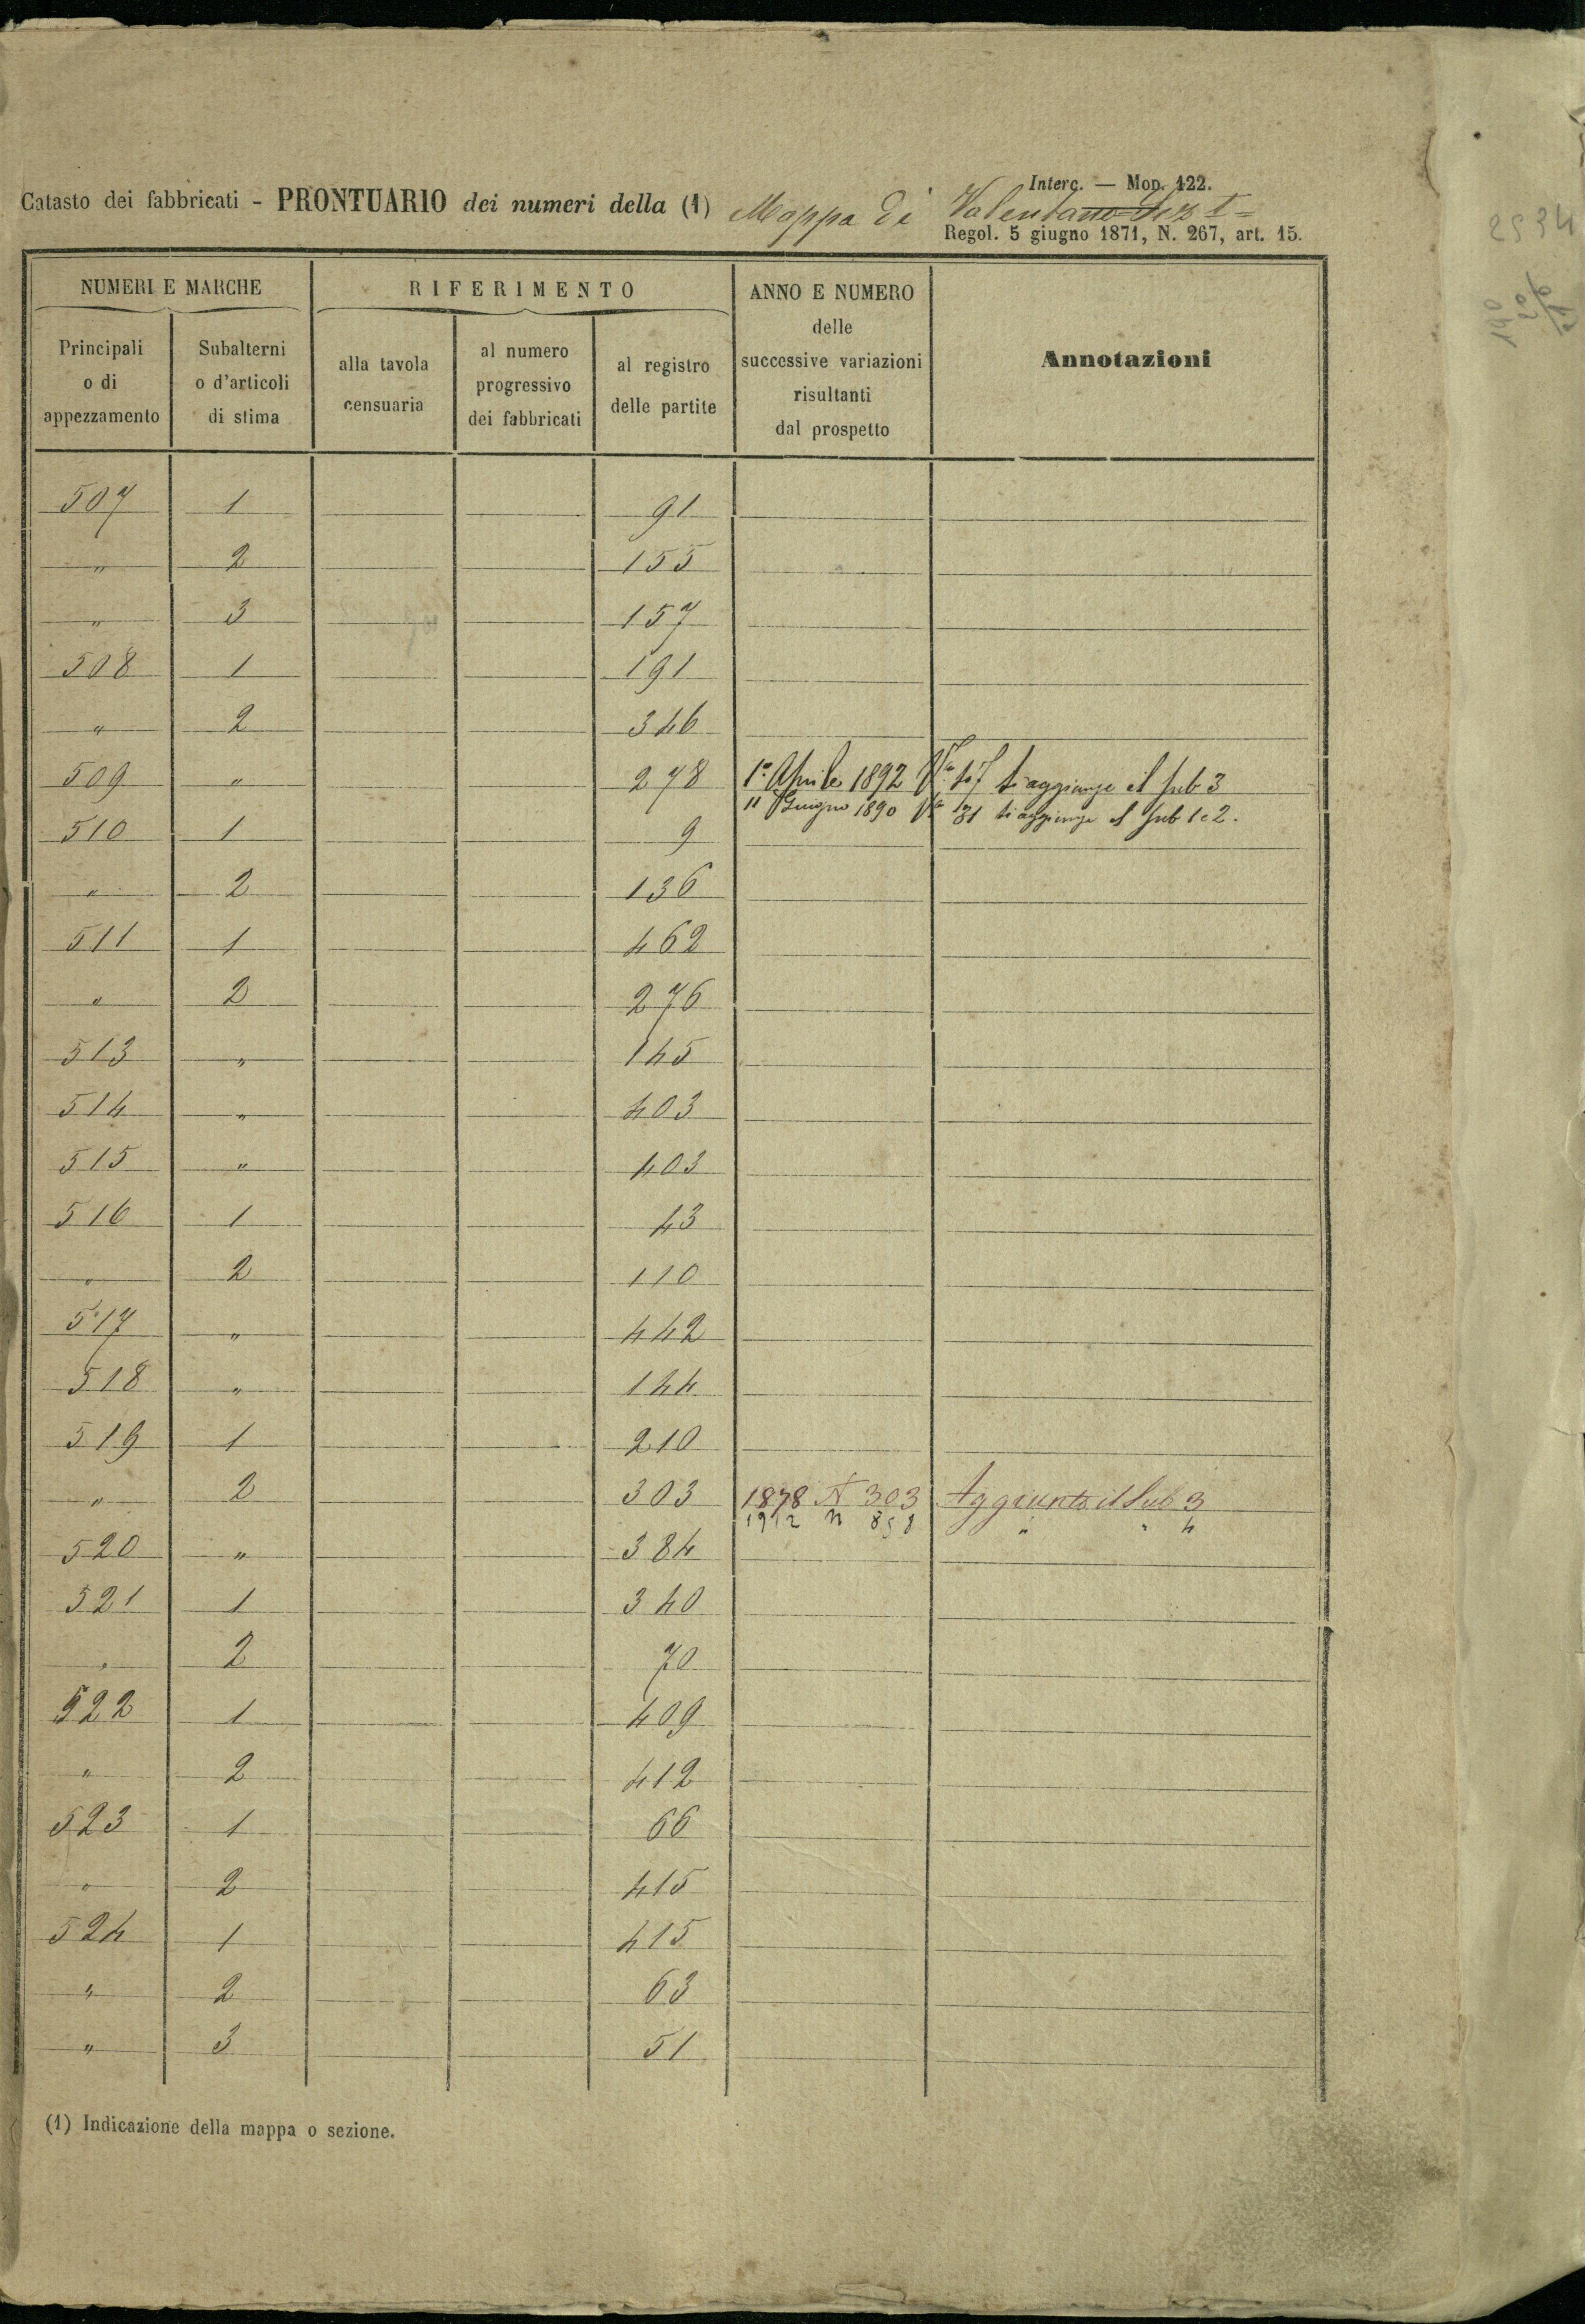 Interc. — Mod. 122.
Catasto dei fabbricati - PRONTUARIO dei numeri della (1) Mappa di Valentano Sez I =
Regol. 5 giugno 1871, N. 267, art. 15.
2534
NUMERI E MARCHE
RIFERIMENTO
ANNO E NUMERO
delle
successive variazioni
risultanti
dal prospetto
Annotazioni
Principali
o di
appezzamento
Subalterni
o d'articoli
di stima
alla tavola
censuaria
al numero
progressivo
dei fabbricati
al registro
delle partite
507 1 91
" 2 155
" 3 157
508 1 191
" 2 346
509 " 278 1° Aprile 1892 si aggiunge il sub 3
11 Giugno 1890 31 si aggiunge il sub 1 e 2.
510 1 9
" 2 136
511 1 462
" 2 276
513 " 145
514 " 403
515 " 403
516 1 43
" 2 110
517 " 442
518 " 144
519 1 210
" 2 303 1878 N 303 Aggiunto il Sub 3
1912 n 858 " " 4
520 " 384
521 1 340
" 2 70
522 1 409
" 2 412
523 1 66
" 2 415
524 1 415
" 2 63
" 3 51
(1) Indicazione della mappa o sezione.